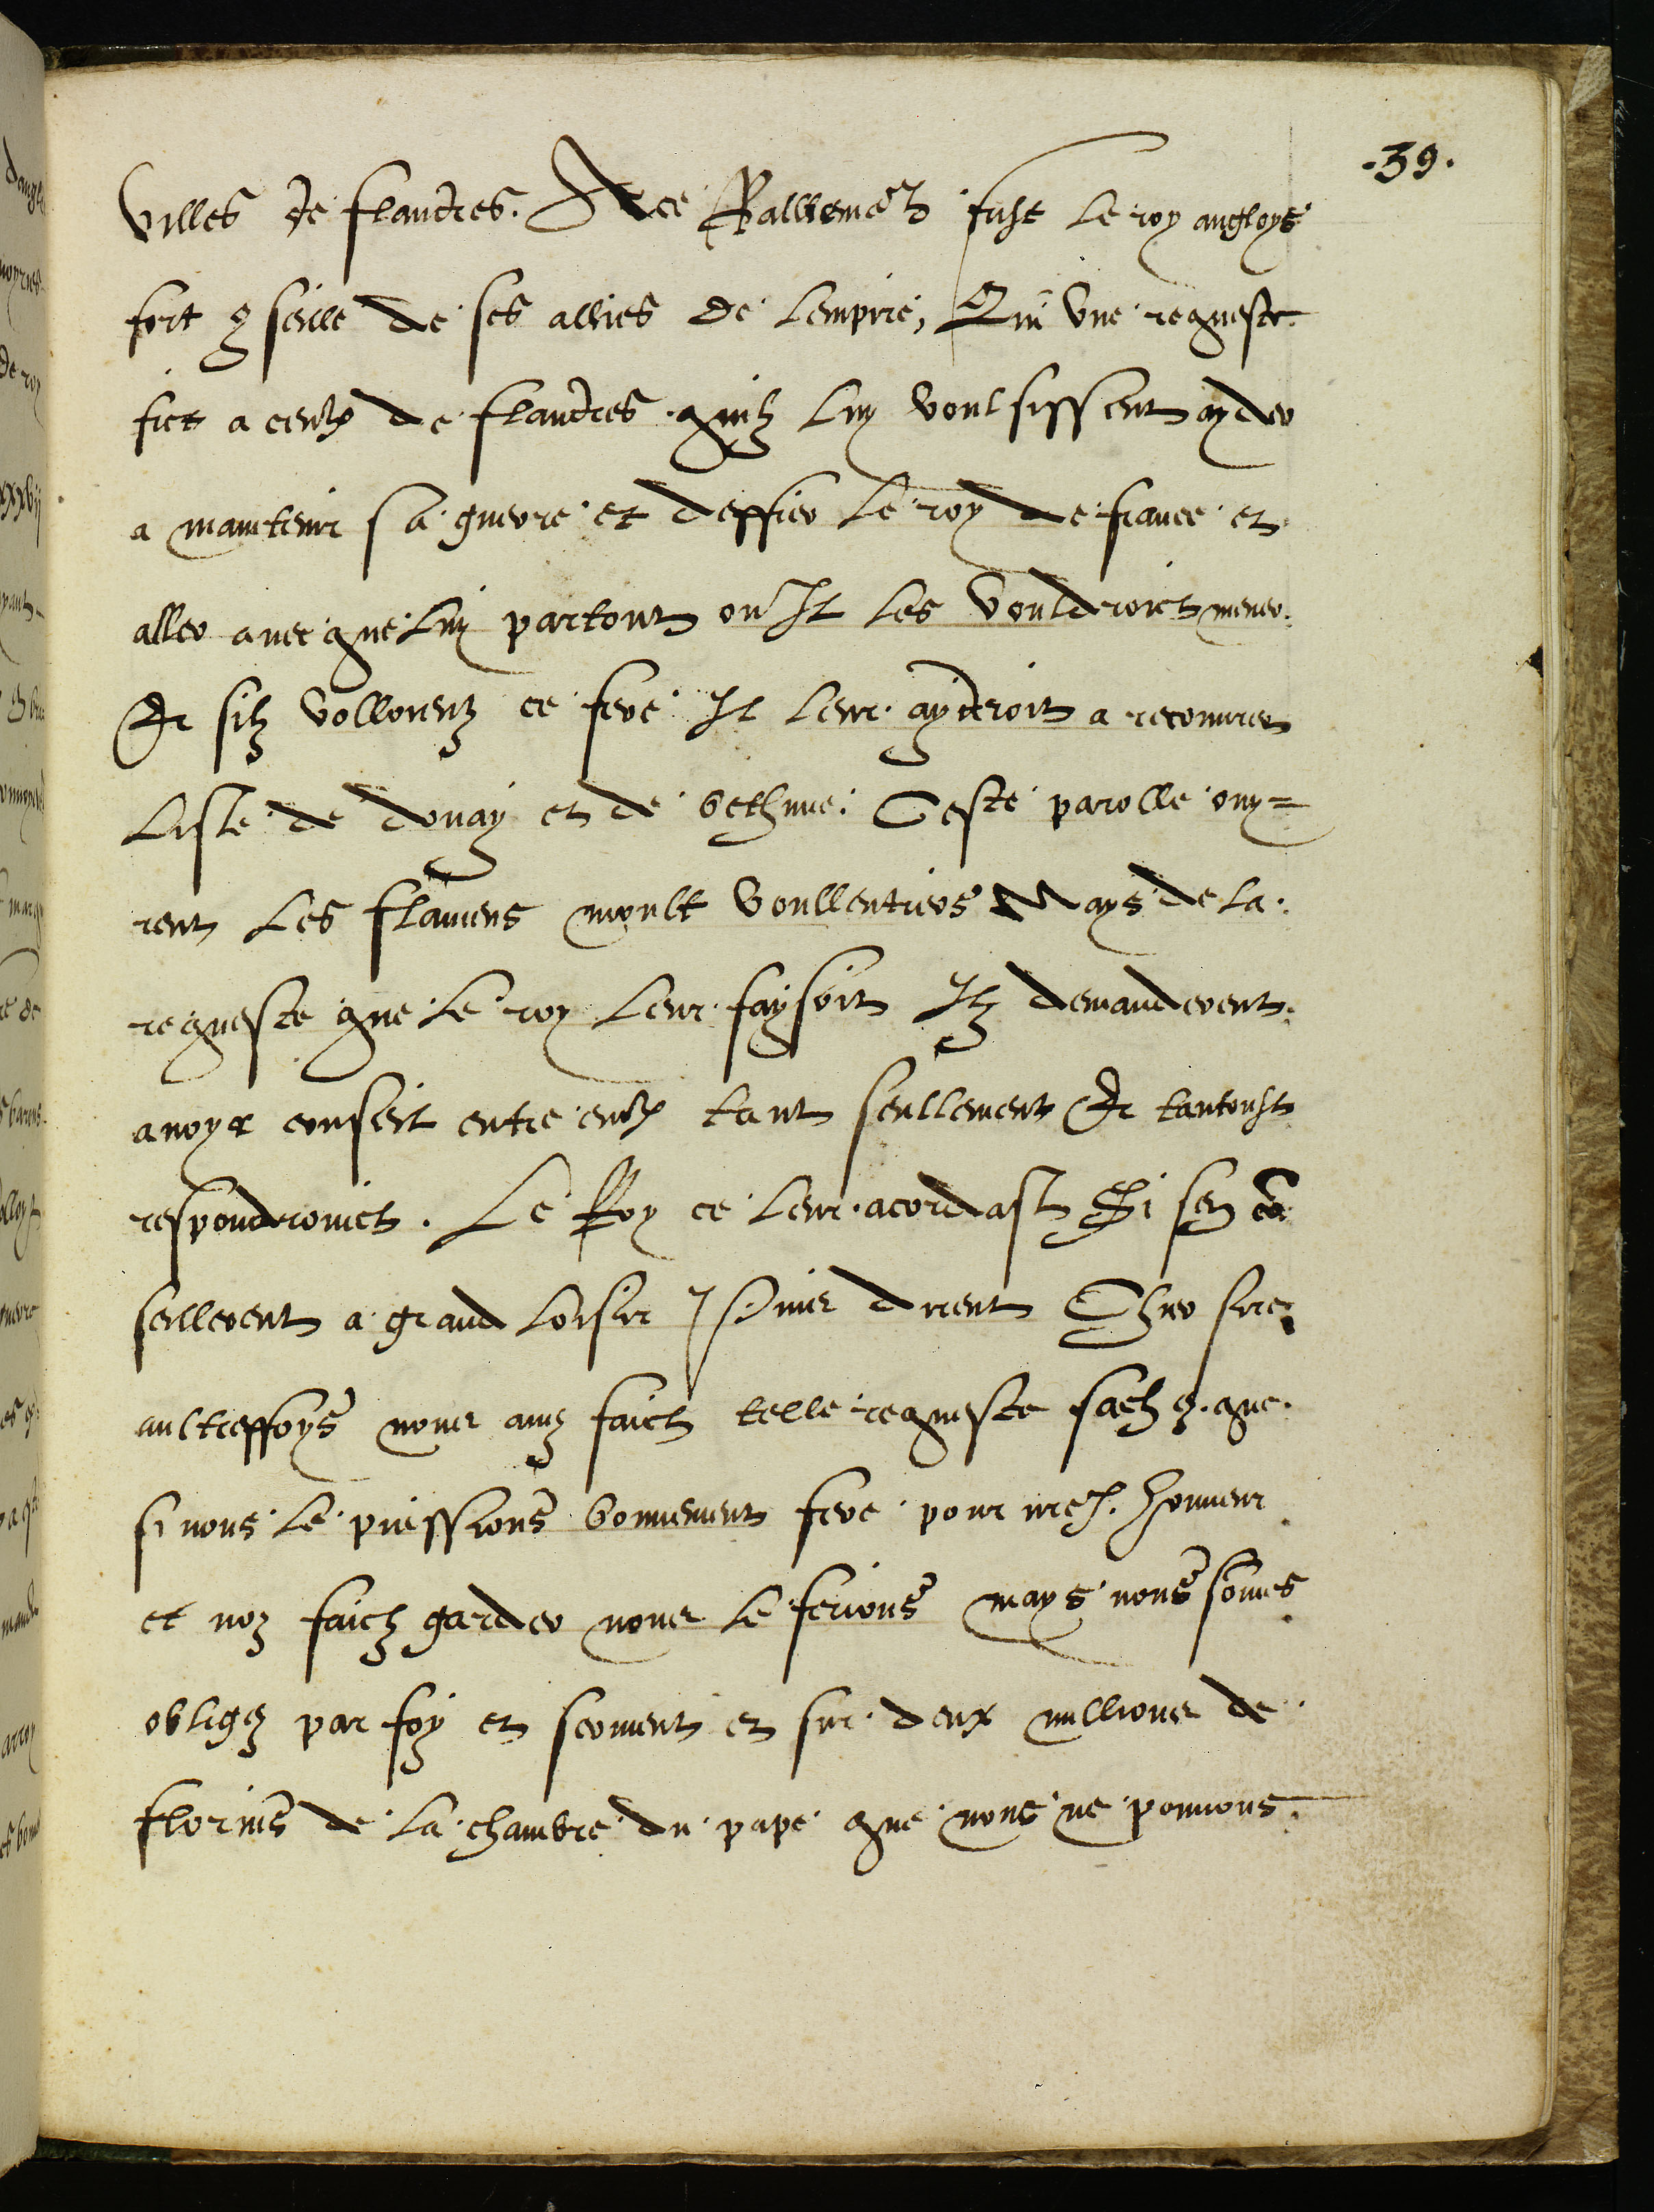 .39.
villes de flandres. A ce Rallieme~t fust le roy angloys
fort 9seille de ses allies de lempire, Qui vne requeste
fict a ceulx de flandres quilz luy voulsissent ayder
a maintenir sa guerre et deffier le roy de france et
aller avecque luy partout ou Il les vouldroict mener.
Et silz vollorent ce fere Il leur ayderoit a recouurer
Lisle de douay et de bethune. Ceste parolle ouy=
rent les flamens moult voullentiers Mays de la
requeste que le roy leur faysoit Ilz demanderent
auoyr conseil entre eulx tant seullement Et tantoust
respondroinct. Le Roy ce leur acordast Si sen co~
seillerent a grand loisir & puis dirent Cher sire
aultreffoys nous auez faict telle requeste sachez que
si nous le puissions bonnement fere pour vre~ honneur
et noz faictz garder nous le ferions mays nous so~mes
obligez par foy et serment et sur deux millions de
florins de la chambre du pape que nous ne pouuons